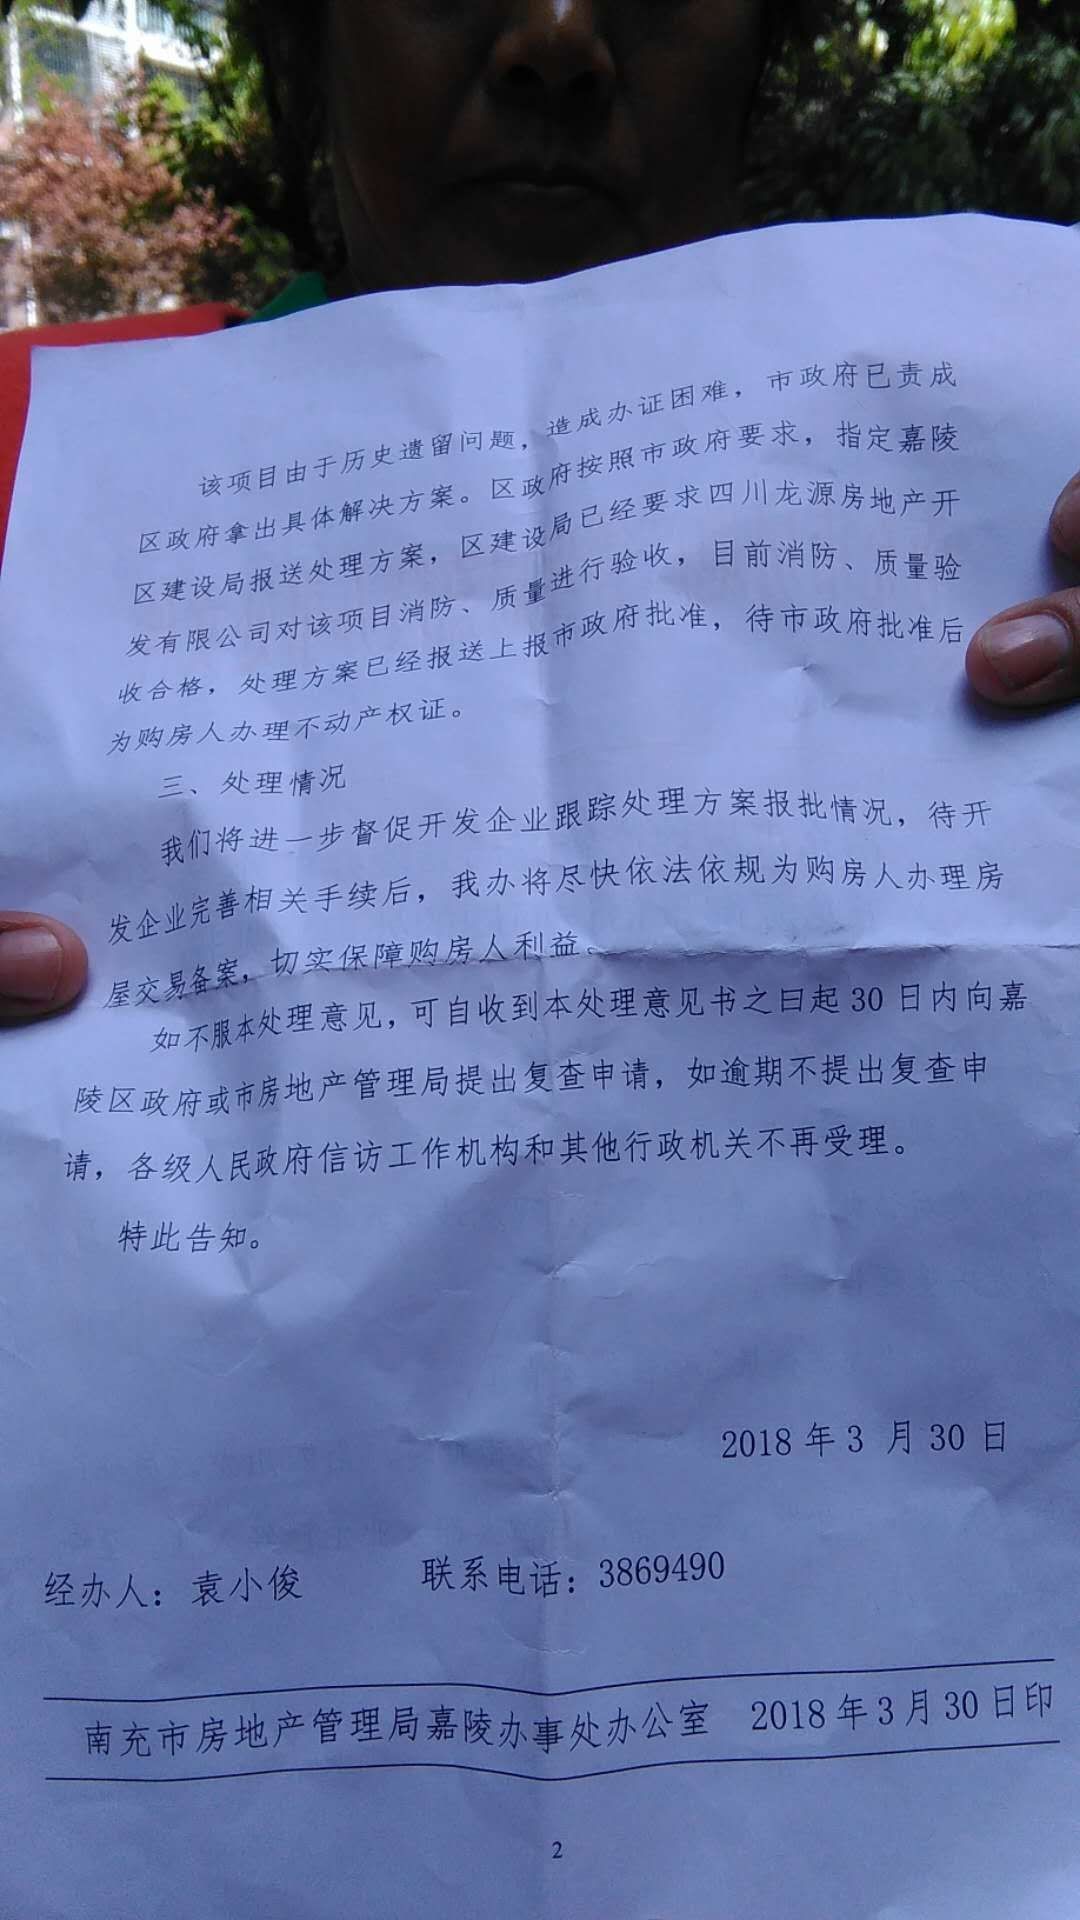 该项目由于历史遗留问题，造成办证困难，市政府已责成
区政府拿出具体解决方案。区政府按照市政府要求，指定嘉陵
区建设局报送处理方案，区建设局已经要求四川龙源房地产开
发有限公司对该项目消防、质量进行验收，目前消防、质量验
收合格，处理方案已经报送上报市政府批准，待市政府批准后
为购房人办理不动产权证。
三、处理情况
我们将进一步督促开发企业跟踪处理方案报批情况，待开
发企业完善相关手续后，我办将尽快依法依规为购房人办理房
屋交易备案，切实保障购房人利益。
如不服本处理意见，可自收到本处理意见书之日起 30 日内向嘉
陵区政府或市房地产管理局提出复查申请，如逾期不提出复查申
请，各级人民政府信访工作机构和其他行政机关不再受理。
特此告知。
2018 年 3 月 30 日
经办人：袁小俊 联系电话：3869490
南充市房地产管理局嘉陵办事处办公室 2018 年 3 月 30 日印
2